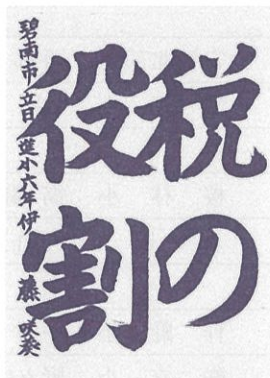 税の
役割
碧南市立日進小六年伊藤咲葵